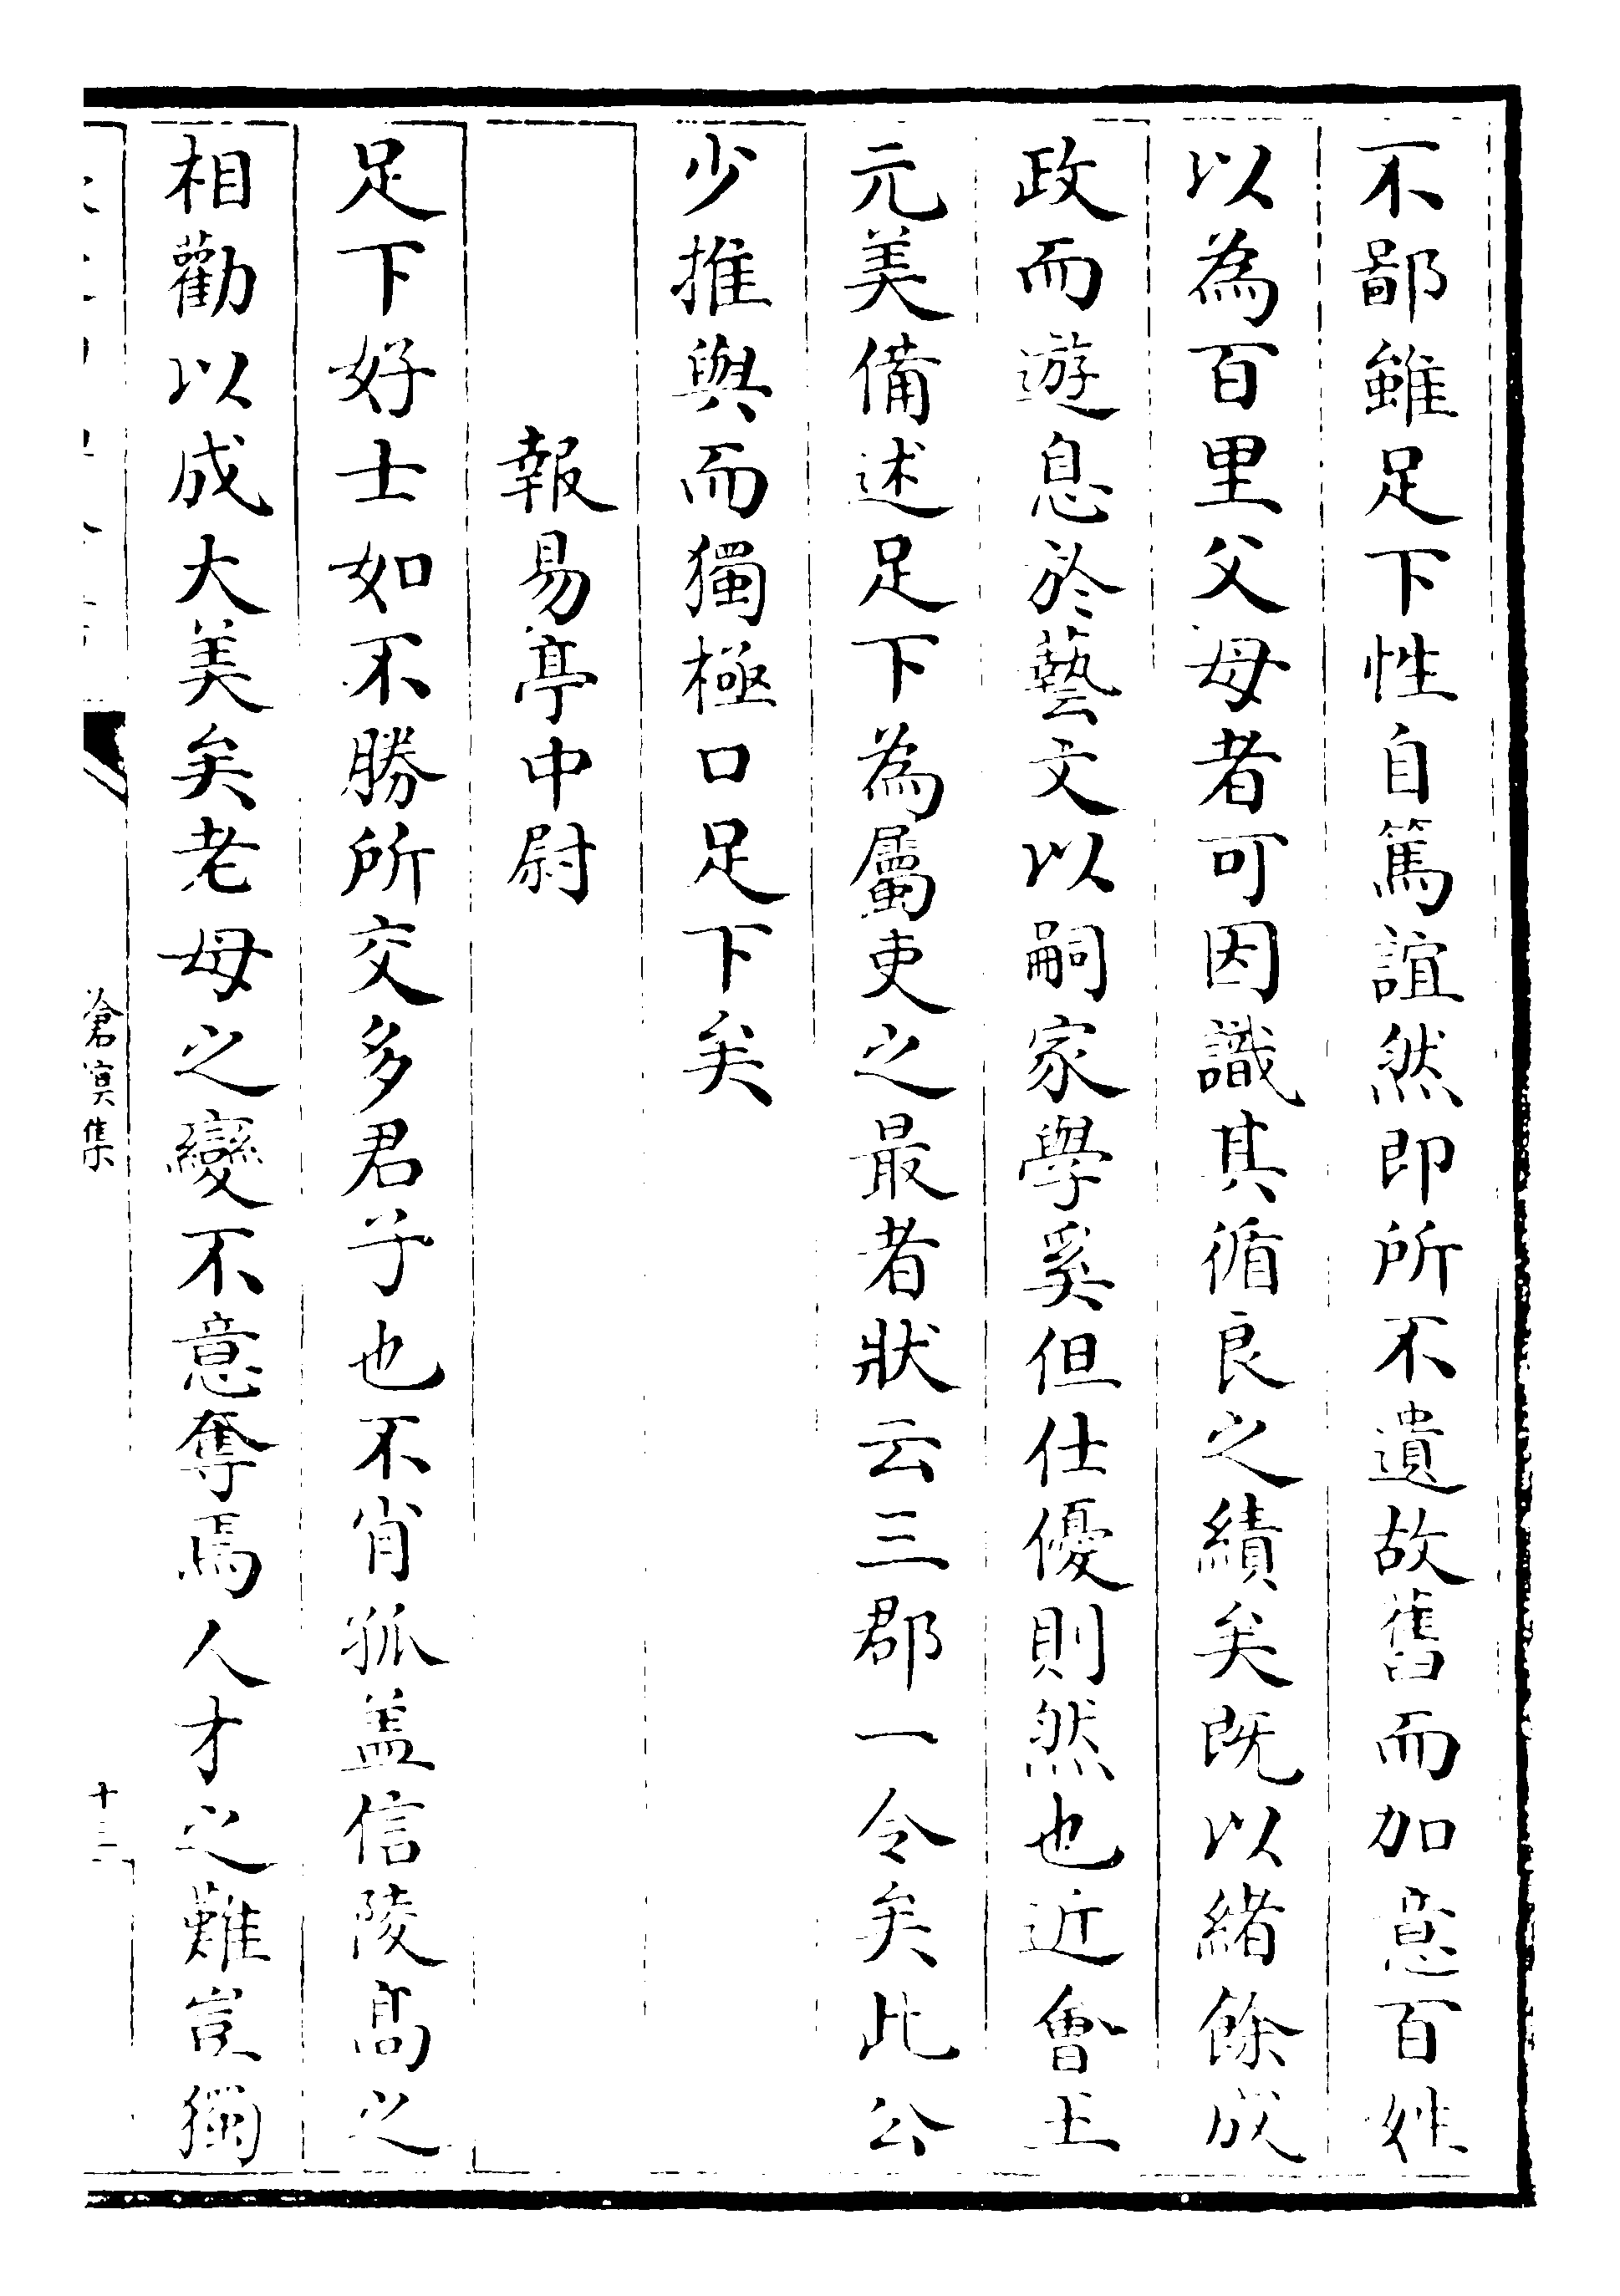 不鄙雖足下性自篤誼然即所不遺故舊而加意百姓
以為百里父母者可因識其循良之績矣既以緒餘成
政而遊息於藝文以嗣家學奚但仕優則然也近會王
元美備述足下為屬吏之最者狀云三郡一令矣此公
少推與而獨極口足下矣
報易亭中尉
足下好士如不勝所交多君子也不肖孤盖信陵髙之
相勸以成大美矣老母之變不意奪焉人才之難豈獨
滄溟集
十三